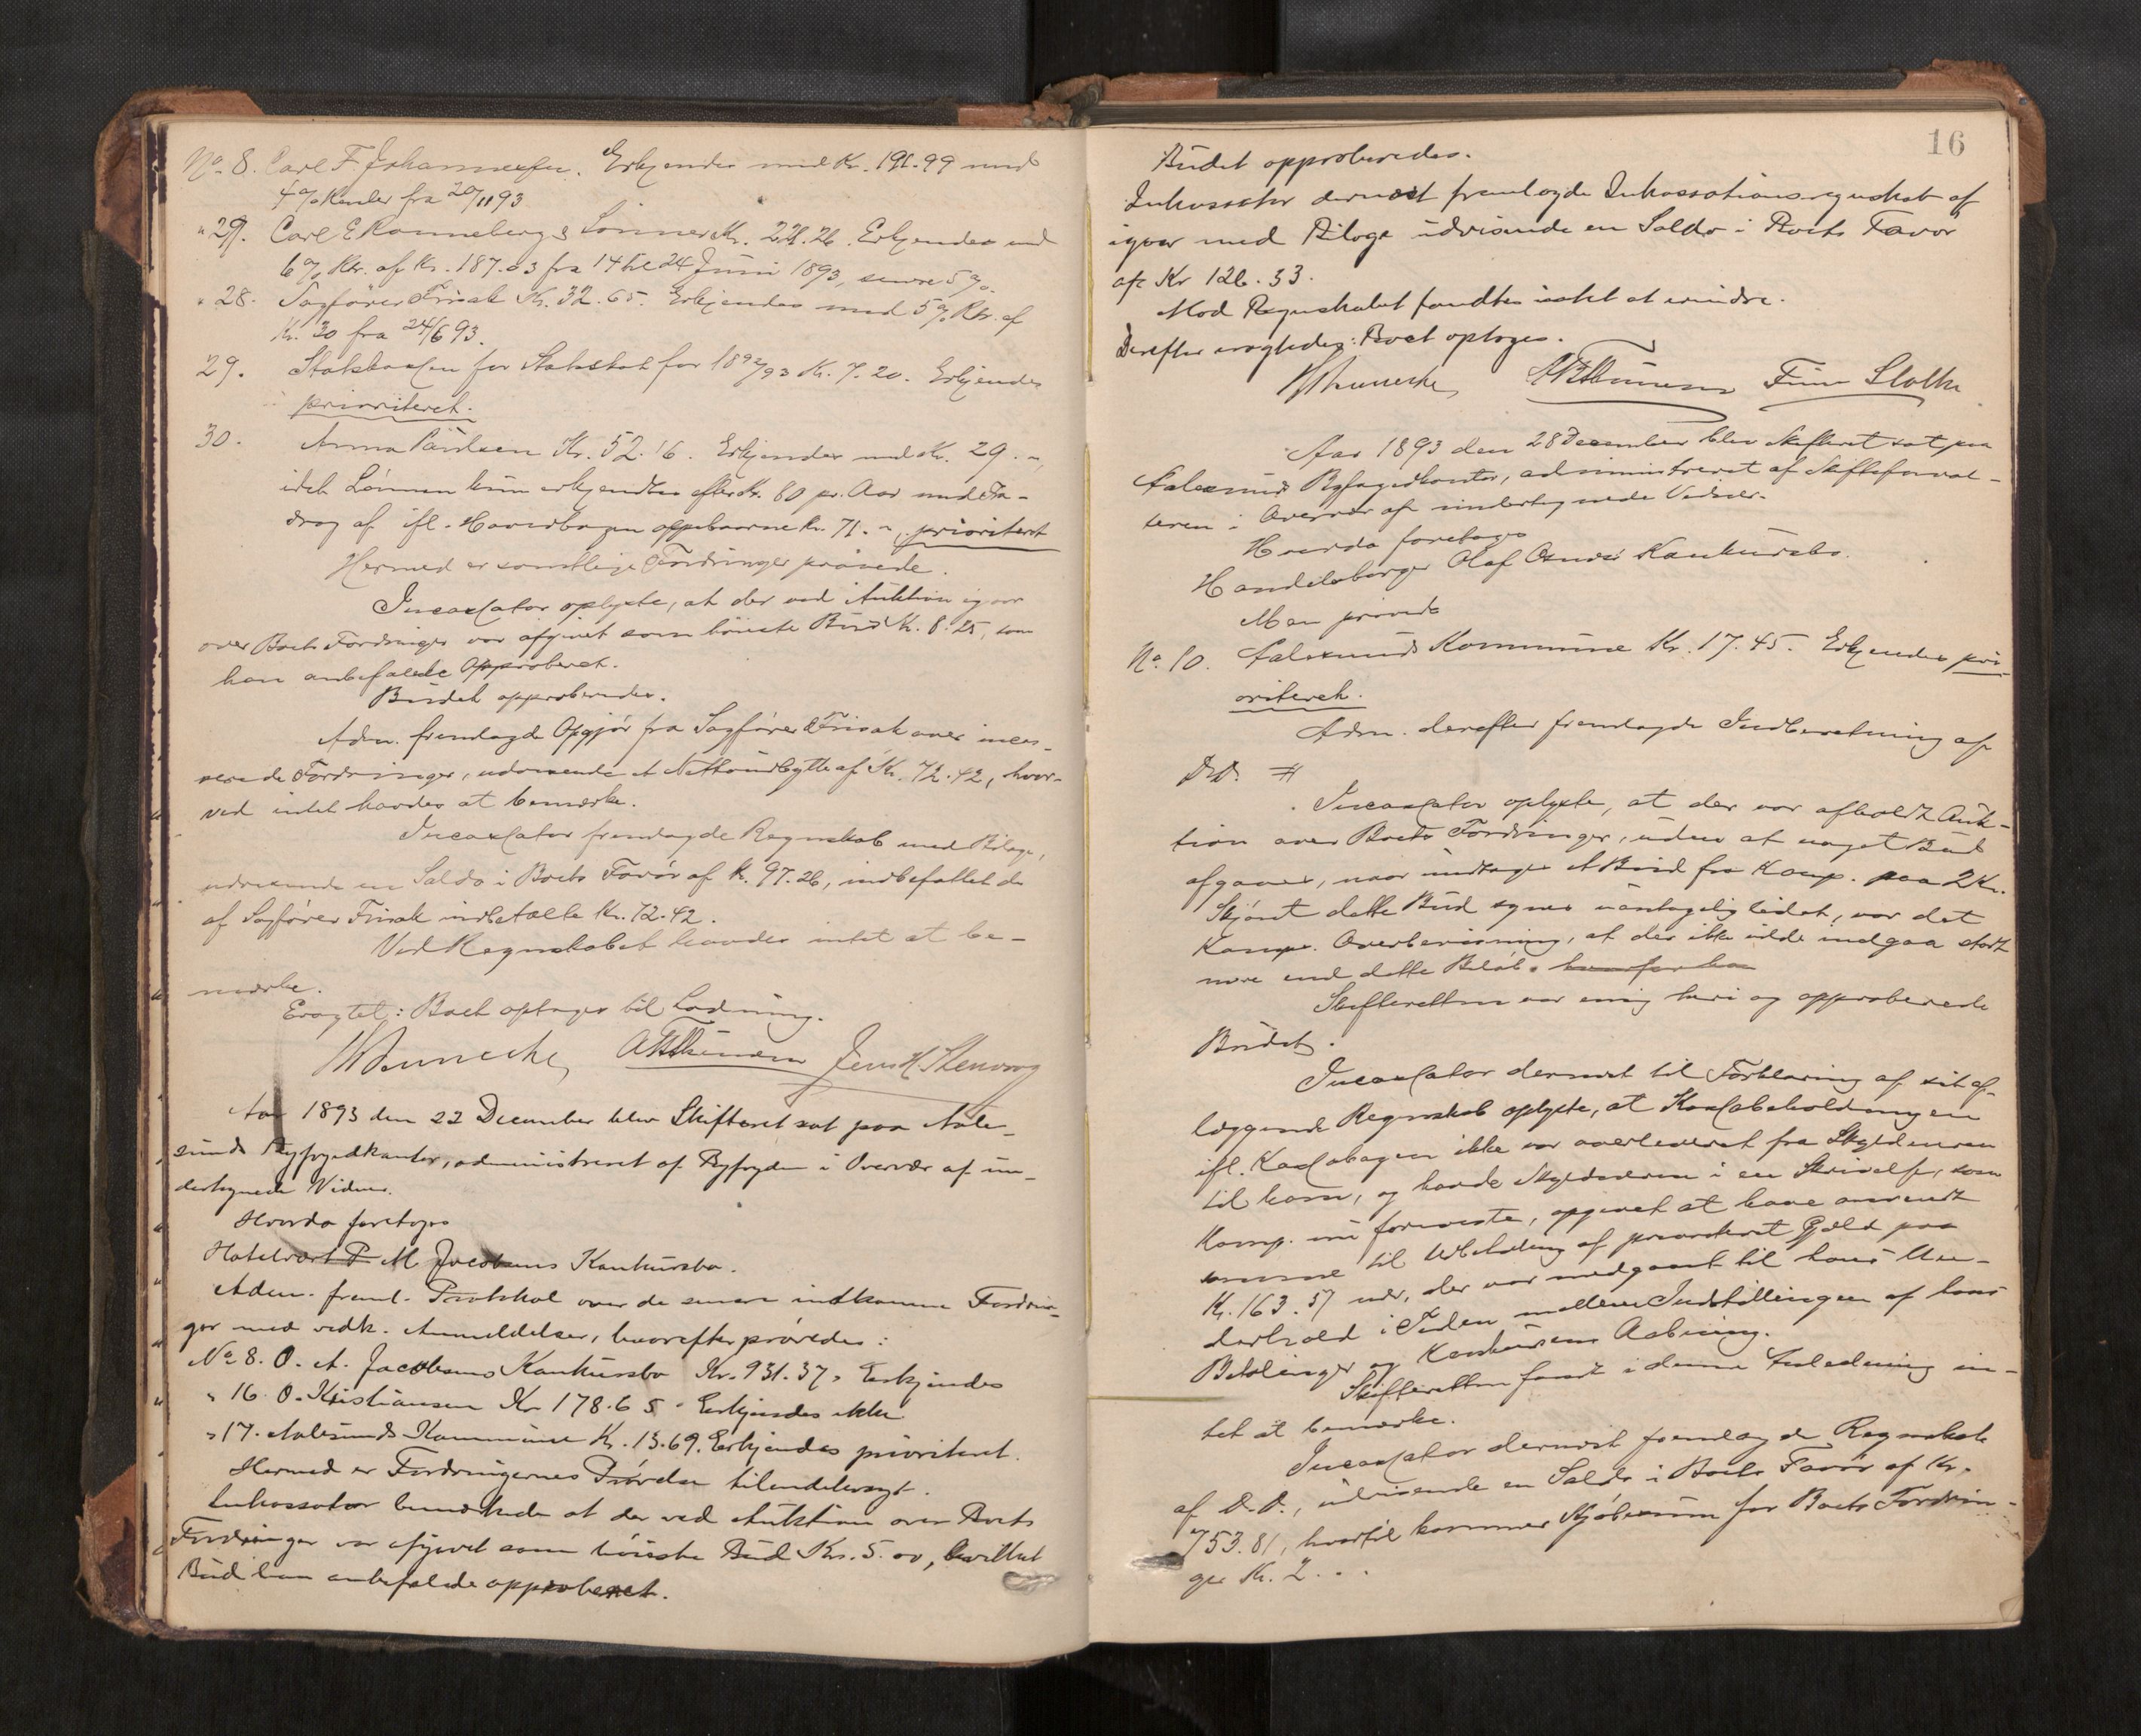 No. 8. Carl F. Johannessen. Erkjendes med Kr. 191.99 med
4 % Renter fra 20/11 93
" 29. Carl E Rønneberg & Sønner Kr. 221.26. Erkjendes med
6 % Rtr. af Kr. 187.03 fra 14 til 24 Juni 1893, senere 5 %.
" 28. Sagfører Frisak Kr. 32.65. Erkjendes med 5 % Rtr. af
Kr. 30 fra 24/6 93.
29. Statskassen for Statsskat for 1892/93 Kr. 7.20. Erkjendes
prioriteret.
30. Anna Paulsen Kr. 52.16. Erkjendes med Kr. 29.-,
idet Lønnen kun erkjendtes efter Kr. 80 pr. Aar med Fra-
drag af ifl. Hovedbogen oppebaarne Kr. 71.-, prioriteret
Hermed er samtlige Fordringer prøvede.
Incassator oplyste, at der ved Auktion igaar
over Boets Fordringer var afgivet som høieste Bud Kr. 8.25, som
han anbefalede Approberet.
Budet approberedes.
Adm. fremlagde Opgjør fra Sagfører Frisak over incas-
serede Fordringer, udvisende et Nettoudbytte af Kr. 72.42, hvor-
ved intet havdes at bemærke.
Incassator fremlagde Regnskab med Bilage,
udvisende en Saldo i Boets Favør af Kr. 97.26, indbefattet de
af Sagfører Frisak indbetalte Kr. 72.42.
Ved Regnskabet havdes intet at be-
mærke.
Eragtet: Boet optages til Lodning.
Jens H. Stenvaag
Aar 1893 den 22 December blev Skifteret sat paa Aale-
sunds Byfogedkontor, administreret af Byfogden i Overvær af un-
dertegnede Vidner.
Hvorda foretoges
Hotelvært P M Jacobsens Konkursbo.
Adm. freml. Protokol over de senere indkomne Fordrin-
ger med vedk. Anmeldelser, hvorefter prøvedes:
No 8. O. A. Jacobsens Konkursbo Kr. 931.37. Erkjendes
" 16. O. Kristiansen Kr 178.65. Erkjendes ikke
" 17. Aalesunds Kommune Kr. 13.69. Erkjendes prioriteret.
Hermed er Fordringernes Prøvelse tilendebragt.
Inkassator bemærkede at der ved Auktion over Boets
Fordringer var afgivet som høieste Bud Kr. 5.00, hvilket
Bud han anbefalede approberet.
16
Budet approberedes.
Inkassator dernæst fremlagde Inkassationsregnskab af
igaar med Bilage udvisende en Saldo i Boets Favør
af Kr 126.33.
Mod Regnskabet fandtes intet at erindre.
Derefter eragtedes: Boet optoges.
Finn Slotte
Aar 1893 den 28 December blev Skifteret sat paa
Aalesunds Byfogedkontor, administreret af Skifteforval-
teren i Overvær af undertegnede Vidner.
Hvorda foretoges
Handelsborger Olaf Konkursbo.
Man prøvede
No. 10. Aalesunds Kommune Kr. 17.45. Erkjendes pri-
oriteret.
Adm. derefter fremlagde Indberetning af
D.D. #
Incassator oplyste, at der var afholdt Auk-
tion over Boets Fordringer, uden at noget Bud
afgaves, naar undtages et Bud fra Komp. paa 2 Kr.
Skjønt dette Bud synes uantagelig lidet, var det
Komp. Overbevisning, at der ikke vilde indgaa stort
mere end dette Beløb. hvorfor han
Skifteretten var enig heri og approberede
Budet.
Incassator dernæst til Forklaring af sit af-
læggende Regnskab oplyste, at Kassabeholdningen
ifl. Kassabogen ikke var overleveret fra Skyldneren
til ham, og havde Skyldneren i en Skrivelse, som
Komp. nu foreviste, opgivet at have anvendt
samme til Udbetaling af prioriteret Gjæld paa
Kr. 163.57 der var medgaaet til hans Un-
derhold i Tiden mellem Indstillingen af hans
Betalinger og Konkursens Aabning.
Skifteretten fandt i denne Anledning in-
tet at bemærke.
Incassator dernæst fremlagde Regnskab
af D.D., udvisende en Saldo i Boets Favør af Kr.
753.81, hvortil kommer Kjøbesum for Boets Fordrin-
ger Kr. 2...